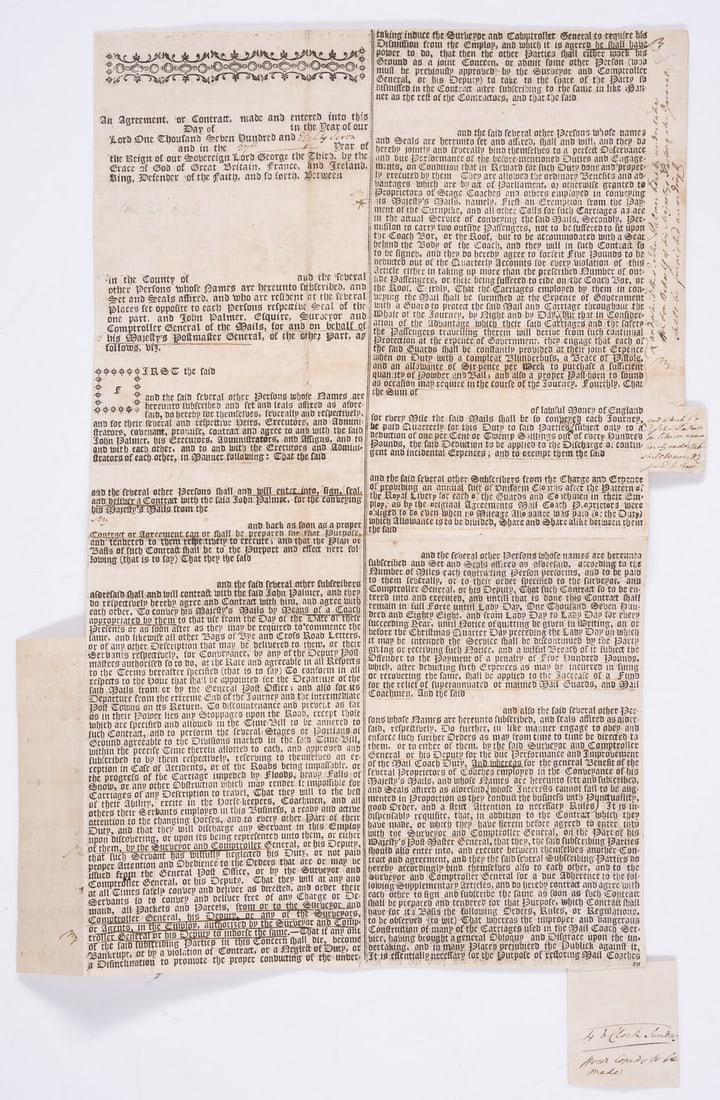 An Agreement, or Contract, made and entered into this
Day of in the Year of our
Lord One Thousand Seven Hundred and Eighty Seven
and in the Year of
the Reign of our Sovereign Lord George the Third, by the
Grace of God of Great Britain, France, and Ireland,
King, Defender of the Faith, and so forth, Between
in the County of and the several
other Persons whose Names are hereunto subscribed, and
Set and Seals affixed, and who are resident at the several
Places set opposite to each Persons respective Seal of the
one part, and John Palmer, Esquire, Surveyor and
Comptroller General of the Mails, for and on behalf of
his Majesty's Postmaster General, of the other Part, as
follows, viz.
FIRST the said
and the said several other Persons whose Names are
hereunto subscribed and set and seals affixed as afore-
said, do hereby for themselves, severally and respectively,
and for their several and respective Heirs, Executors, and Admini-
strators, covenant, promise, contract and agree to and with the said
John Palmer, his Executors, Administrators, and Assigns, and to
and with each other, and to and with the Executors and Admini-
strators of each other, in Manner following: That the said
and the several other Persons shall and will enter into, sign, seal,
and deliver a Contract with the said John Palmer, for the conveying
his Majesty's Mails from the
and back as soon as a proper
Contract or Agreement can or shall be prepared for that Purpose,
and tendered to them respectively to execute; and that the Plan or
Basis of such Contract shall be to the Purport and effect next fol-
lowing (that is to say) That they the said
and the said several other subscribers
aforesaid shall and will contract with the said John Palmer, and they
do respectively hereby agree and Contract with him, and agree with
each other, To convey his Majesty's Mails by Means of a Coach
appropriated by them to that use from the Day of the Date of these
Presents or as soon after as they may be required to commence the
same, and likewise all other Bags of Bye and Cross Road Letters,
or of any other Description that may be delivered to them, or their
Servants respectively, for Conveyance, by any of the Deputy Post-
masters authorised so to do, at the Rate and agreeable in all Respects
to the Terms hereafter specified (that is to say) To conform in all
respects to the Hour that shall be appointed for the Departure of the
said Mails from or by the General Post Office; and also for its
Departure from the extreme End of the Journey and the intermediate
Post Towns on its Return. To discountenance and prevent as far
as in their Power lies any Stoppages upon the Road, except those
which are specified and allowed in the Time-Bill to be annexed to
such Contract, and to perform the several Stages or Portions of
Ground agreeable to the Divisions marked in the said Time-Bill,
within the precise Time therein allotted to each, and approved and
subscribed to by them respectively, reserving to themselves an ex-
ception in Case of Accidents, or of the Roads being impassable, or
the progress of the Carriage impeded by Floods, heavy Falls of
Snow, or any other Obstruction which may render it impossible for
Carriages of any Description to travel, That they will to the best
of their Ability, excite in the Horse-keepers, Coachmen, and all
others their Servants employed in this Business, a ready and active
attention to the changing Horses, and to every other Part of their
Duty, and that they will discharge any Servant in this Employ
upon discovering, or upon its being represented unto them, or either
of them, by the Surveyor and Comptroller General, or his Deputy,
that such Servant has wilfully neglected his Duty, or not paid
proper Attention and Obedience to the Orders that are or may be
issued from the General Post Office, or by the Surveyor and
Comptroller General, or his Deputy. That they will at any and
at all Times safely convey and deliver as directed, and order their
Servants so to convey and deliver free of any Charge or De-
mand, all Packets and Parcels, from or to the Surveyor and
Comptroller General, his Deputy, or any of the Surveyors,
or Agents, in the Employ, authorized by the Surveyor and Comp-
troller General or his Deputy to indorse the same.—That if any one
of the said subscribing Parties in this Concern shall die, become
Bankrupt, or by a violation of Contract, or a Neglect of Duty, or
a Disinclination to promote the proper conducting of the under-
taking induce the Surveyor and Comptroller General to require his
Dismission from the Employ, and which it is agreed he shall have
power to do, that then the other Parties shall either work his
Ground as a joint Concern, or admit some other Person (who
must be previously approved by the Surveyor and Comptroller
General, or his Deputy) to take to the share of the Party so
dismissed in the Contract after subscribing to the same in like Man-
ner as the rest of the Contractors, and that the said
and the said several other Persons whose names
and Seals are hereunto set and affixed, shall and will, and they do
hereby jointly and severally bind themselves to a perfect Observance
and due Performance of the before-mentioned Duties and Engage-
ments, on Condition that in Reward for such Duty done and proper-
ly executed by them They are allowed the ordinary Benefits and ad-
vantages which are by act of Parliament, or otherwise granted to
Proprietors of Stage Coaches and others employed in conveying
his Majesty's Mails, namely, First an Exemption from the Pay-
ment of the Turnpike, and all other Tolls for such Carriages as are
in the actual Service of conveying the said Mails, Secondly, Per-
mission to carry two outside Passengers, not to be suffered to sit upon
the Coach Box, or the Roof, but to be accommodated with a Seat
behind the Body of the Coach, and they will in such Contract so
to be signed, and they do hereby agree to forfeit Five Pounds to be
deducted out of the Quarterly Accounts for every violation of this
Article either in taking up more than the prescribed Number of out-
side Passengers, or their being suffered to ride on the Coach Box, or
the Roof, Thirdly, That the Carriages employed by them in con-
veying the Mail shall be furnished at the Expence of Government
with a Guard to protect the said Mail and Carriage throughout the
Whole of the Journey, by Night and by Day, but that in Consider-
ation of the Advantage which their said Carriages and the safety
the Passengers travelling therein will derive from such continual
Protection at the expence of Government, they engage that each of
the said Guards shall be constantly provided at their joint Expence
when on Duty with a compleat Blunderbuss, a Brace of Pistols,
and an allowance of Sixpence per Week to purchase a sufficient
quantity of Powder and Ball; and also a proper Post horn to sound
as occasion may require in the course of the Journey. Fourthly, That
the Sum of
of lawful Money of England
for every Mile the said Mails shall be so conveyed each Journey,
be paid Quarterly for this Duty to said Parties subject only to a
deduction of one per Cent or Twenty Shillings out of every Hundred
Pounds, the said Deduction to be applied to the Discharge of contin-
gent and incidental Expences; and to exempt them the said
and the said several other Subscribers from the Charge and Expence
of providing an annual suit of uniform Cloaths after the Pattern of
the Royal Livery for each of the Guards and Coachmen in their Em-
ploy, as by the original Agreements Mail Coach Proprietors were
obliged to do even when no Mileage Allowance was paid for the Duty
which Allowance is to be divided, Share and Share alike between them
the said
and the several other Persons whose names are hereunto
subscribed and Set and Seals affixed as aforesaid, according to the
Number of Miles each contracting Person performs, and to be paid
to them severally, or to their order specified to the surveyor, and
Comptroller General, or his Deputy, That such Contract so to be en-
tered into and executed, and until that is done this Contract shall
remain in full Force until Lady Day, One Thousand Seven Hun-
dred and Eighty Eight, and from Lady Day to Lady Day for every
succeeding Year, until Notice of quitting be given in Writing, on or
before the Christmas Quarter Day preceding the Lady Day on which
it may be intended the Service shall be discontinued by the Party
giving or receiving such Notice, and a wilful Breach of it subject the
Offender to the Payment of a penalty of Five Hundred Pounds,
which, after deducting such Expences as may be incurred in suing
or recovering the same, shall be applied to the Increase of a Fund
for the relief of superannuated or maimed Mail Guards, and Mail
Coachmen. And the said
and also the said several other Per-
sons whose Names are hereunto subscribed, and Seals affixed as afore-
said, respectively, Do further, in like manner engage to obey and
enforce such further Orders as may from time to time be directed to
them, or to either of them, by the said Surveyor and Comptroller
General or his Deputy for the due Performance and Improvement
of the Mail Coach Duty, And whereas for the general Benefit of the
several Proprietors of Coaches employed in the Conveyance of his
Majesty's Mails, and whose Names are hereunto sett and subscribed,
and Seals affixed as aforesaid, whose Interests cannot fail to be aug-
mented in Proportion as they conduct the business with Punctuality,
good Order, and a strict Attention to necessary Rules) It is in-
dispensably requisite, that, in addition to the Contract which they
have made, or which they have herein before agreed to enter into
with the Surveyor and Comptroller General, on the Part of his
Majesty's Post Master General, that they, the said subscribing Parties
should also enter into, and execute between themselves another Con-
tract and agreement, and they the said several Subscribing Parties do
hereby accordingly bind themselves also to each other, and to the
Surveyor and Comptroller General for a due Adherence to the fol-
lowing Supplementary Articles, and do hereby contract and agree with
each other to sign and subscribe the same as soon as such Contract
shall be prepared and tendered for that Purpose, which Contract shall
have for its Basis the following Orders, Rules, or Regulations,
to be observed (to wit) That whereas the improper and dangerous
Construction of many of the Carriages used in the Mail Coach Ser-
vice, having brought a general Obloquy and Disgrace upon the un-
dertaking, and in many Places prejudiced the Publick against it,
It is essentially necessary for the Purpose of restoring Mail Coaches
to
4 o'Clock Sunday
four copies to be
made